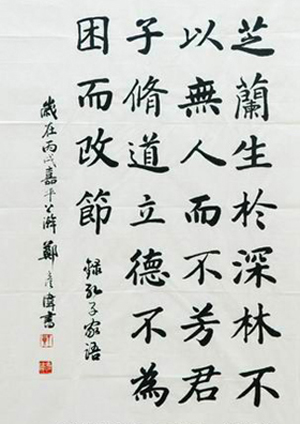 芝蘭生於深林不
以無人而不芳君
子脩道立德不為
困而改節
錄孔子家語
歲在丙戌嘉平 鄭書